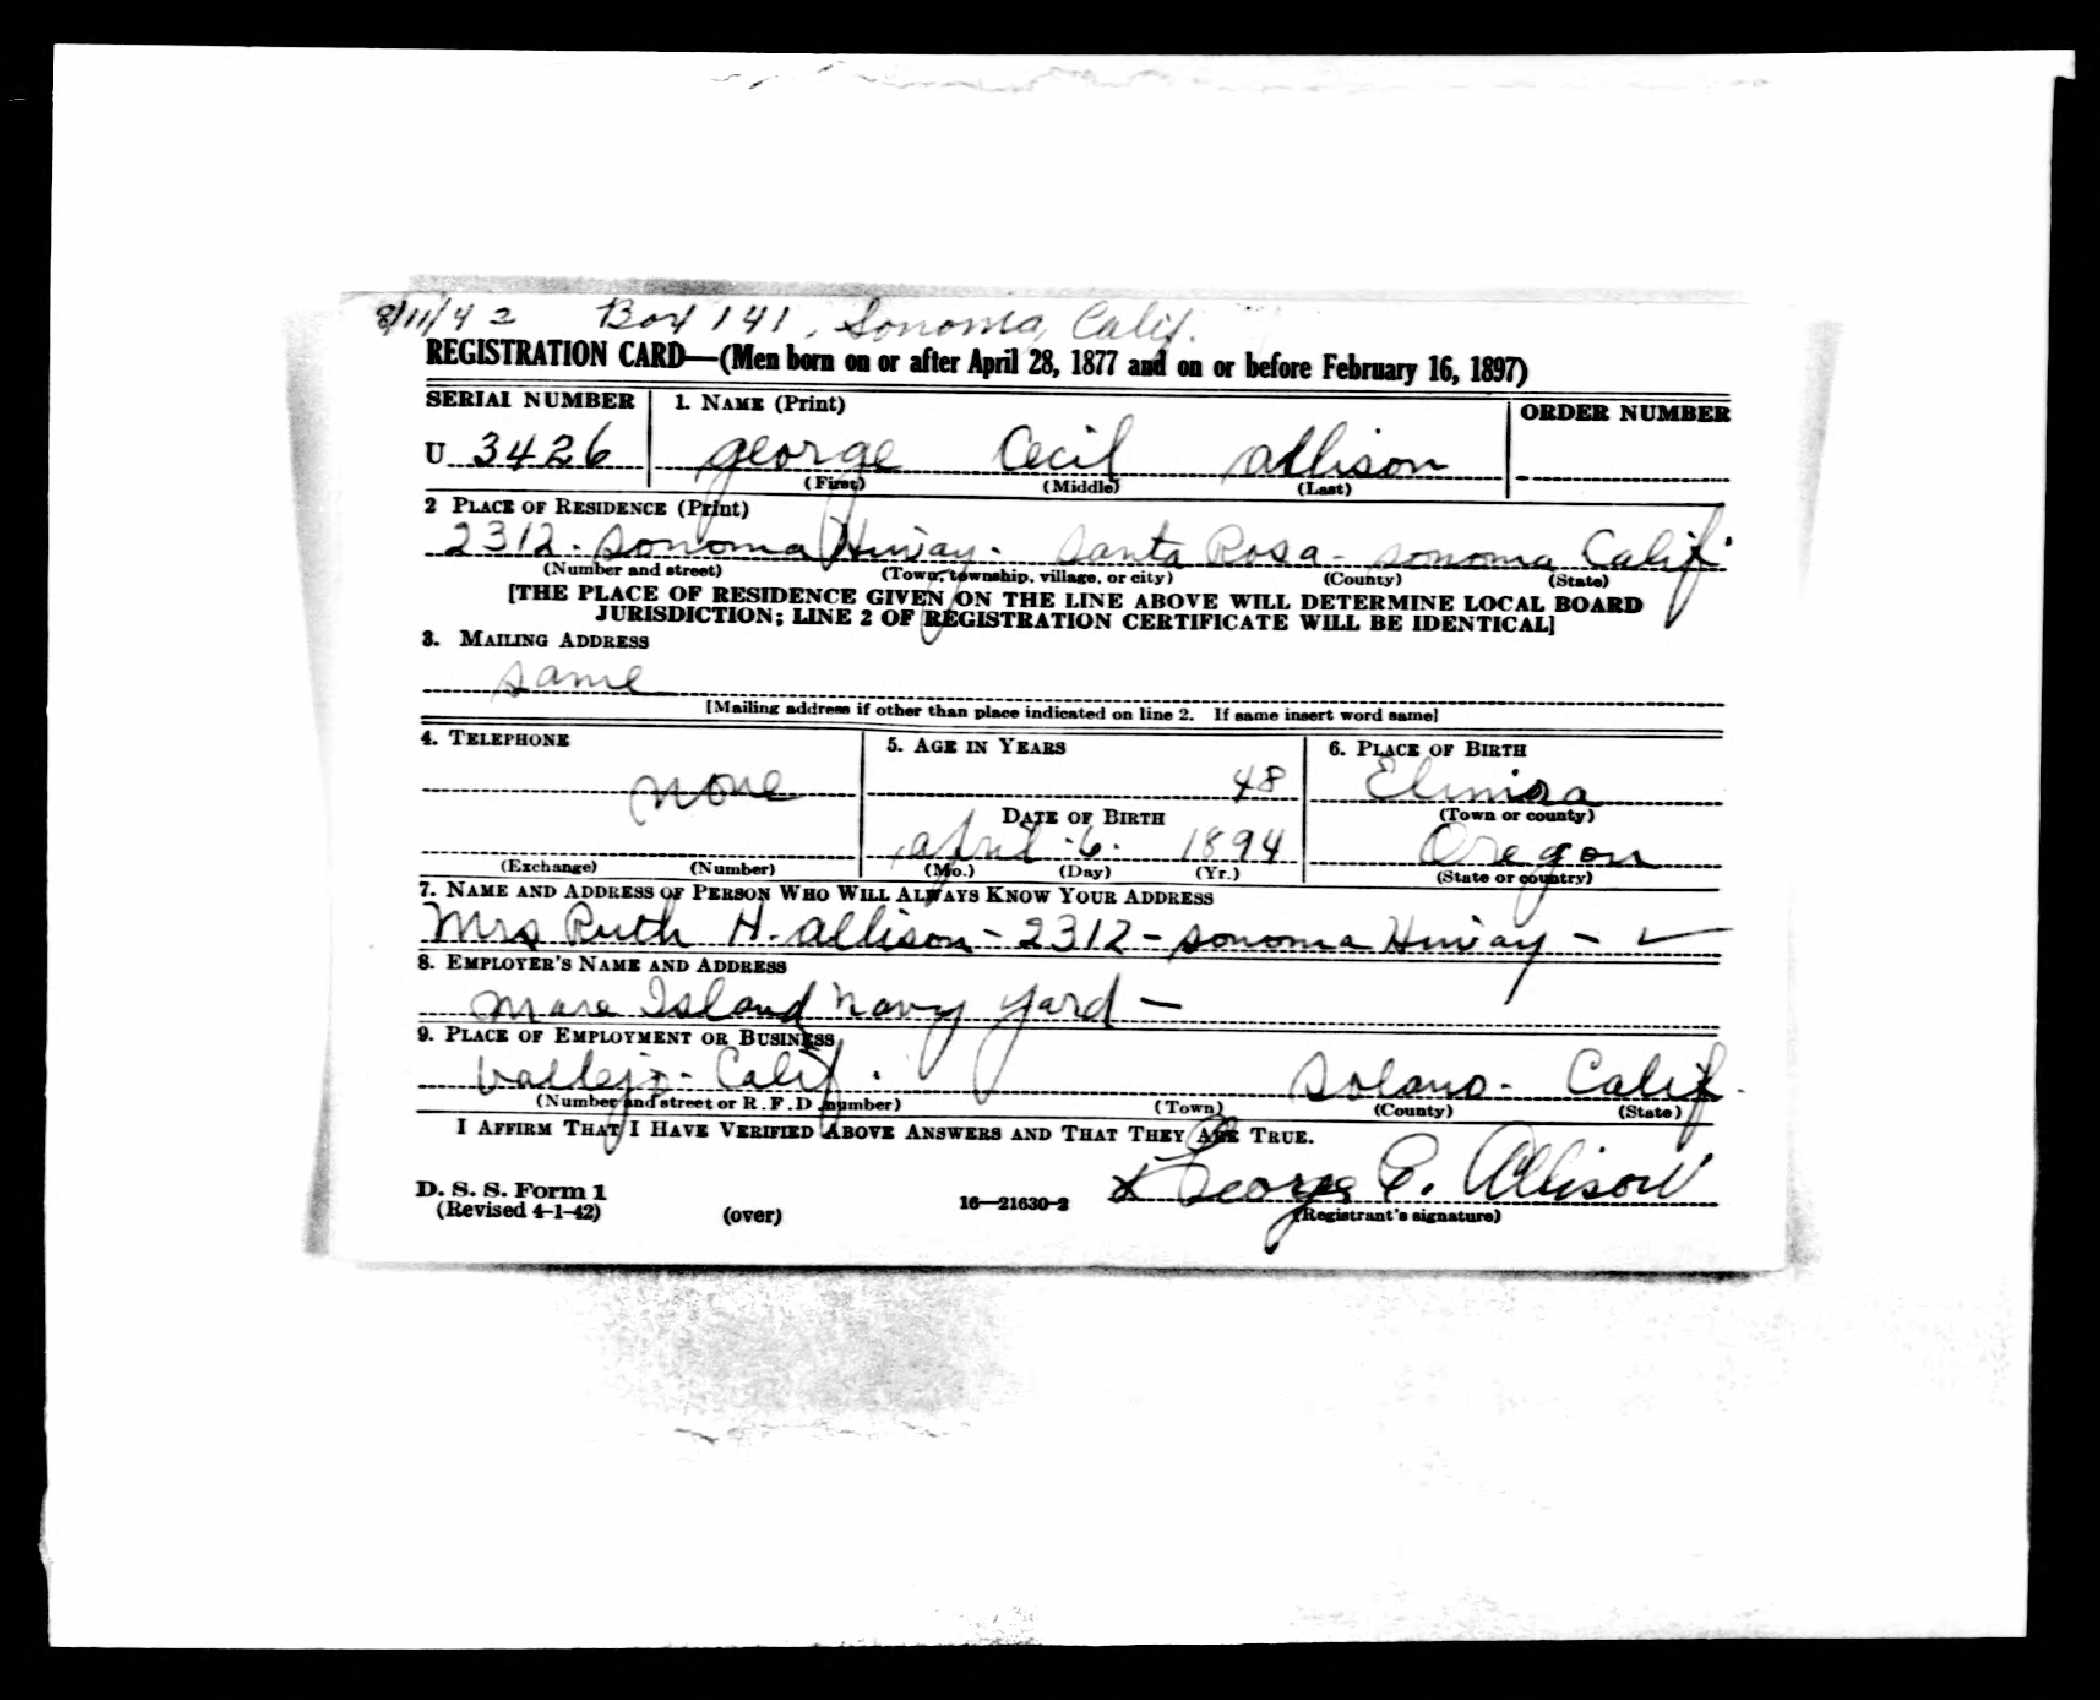 8/11/42 Box 141, Sonoma, Calif.
REGISTRATION CARD—(Men born on or after April 28, 1877 and on or before February 16, 1897)
SERIAL NUMBER 1. NAME (Print) ORDER NUMBER
U 3426 george Cecil allison
(First) (Middle) (Last)
2 PLACE OF RESIDENCE (Print)
2312. Sonoma Hiway. Santa Rosa - sonoma Calif.
(Number and street) (Town, township, village, or city) (County) (State)
[THE PLACE OF RESIDENCE GIVEN ON THE LINE ABOVE WILL DETERMINE LOCAL BOARD
JURISDICTION; LINE 2 OF REGISTRATION CERTIFICATE WILL BE IDENTICAL]
3. MAILING ADDRESS
same
[Mailing address if other than place indicated on line 2. If same insert word same]
4. TELEPHONE 5. AGE IN YEARS 6. PLACE OF BIRTH
none 48 Elmira
DATE OF BIRTH (Town or county)
april .6. 1894 Oregon
(Exchange) (Number) (Mo.) (Day) (Yr.) (State or country)
7. NAME AND ADDRESS OF PERSON WHO WILL ALWAYS KNOW YOUR ADDRESS
Mrs Ruth H. allison - 2312 - sonoma Hiway -
8. EMPLOYER'S NAME AND ADDRESS
Mare Island Navy Yard —
9. PLACE OF EMPLOYMENT OR BUSINESS
Vallejo - Calif. Solano - Calif.
(Number and street or R. F. D. number) (Town) (County) (State)
I AFFIRM THAT I HAVE VERIFIED ABOVE ANSWERS AND THAT THEY ARE TRUE.
x George C. Allison
D. S. S. Form 1
(Revised 4-1-42) (over) 16—21630-2 (Registrant's signature)